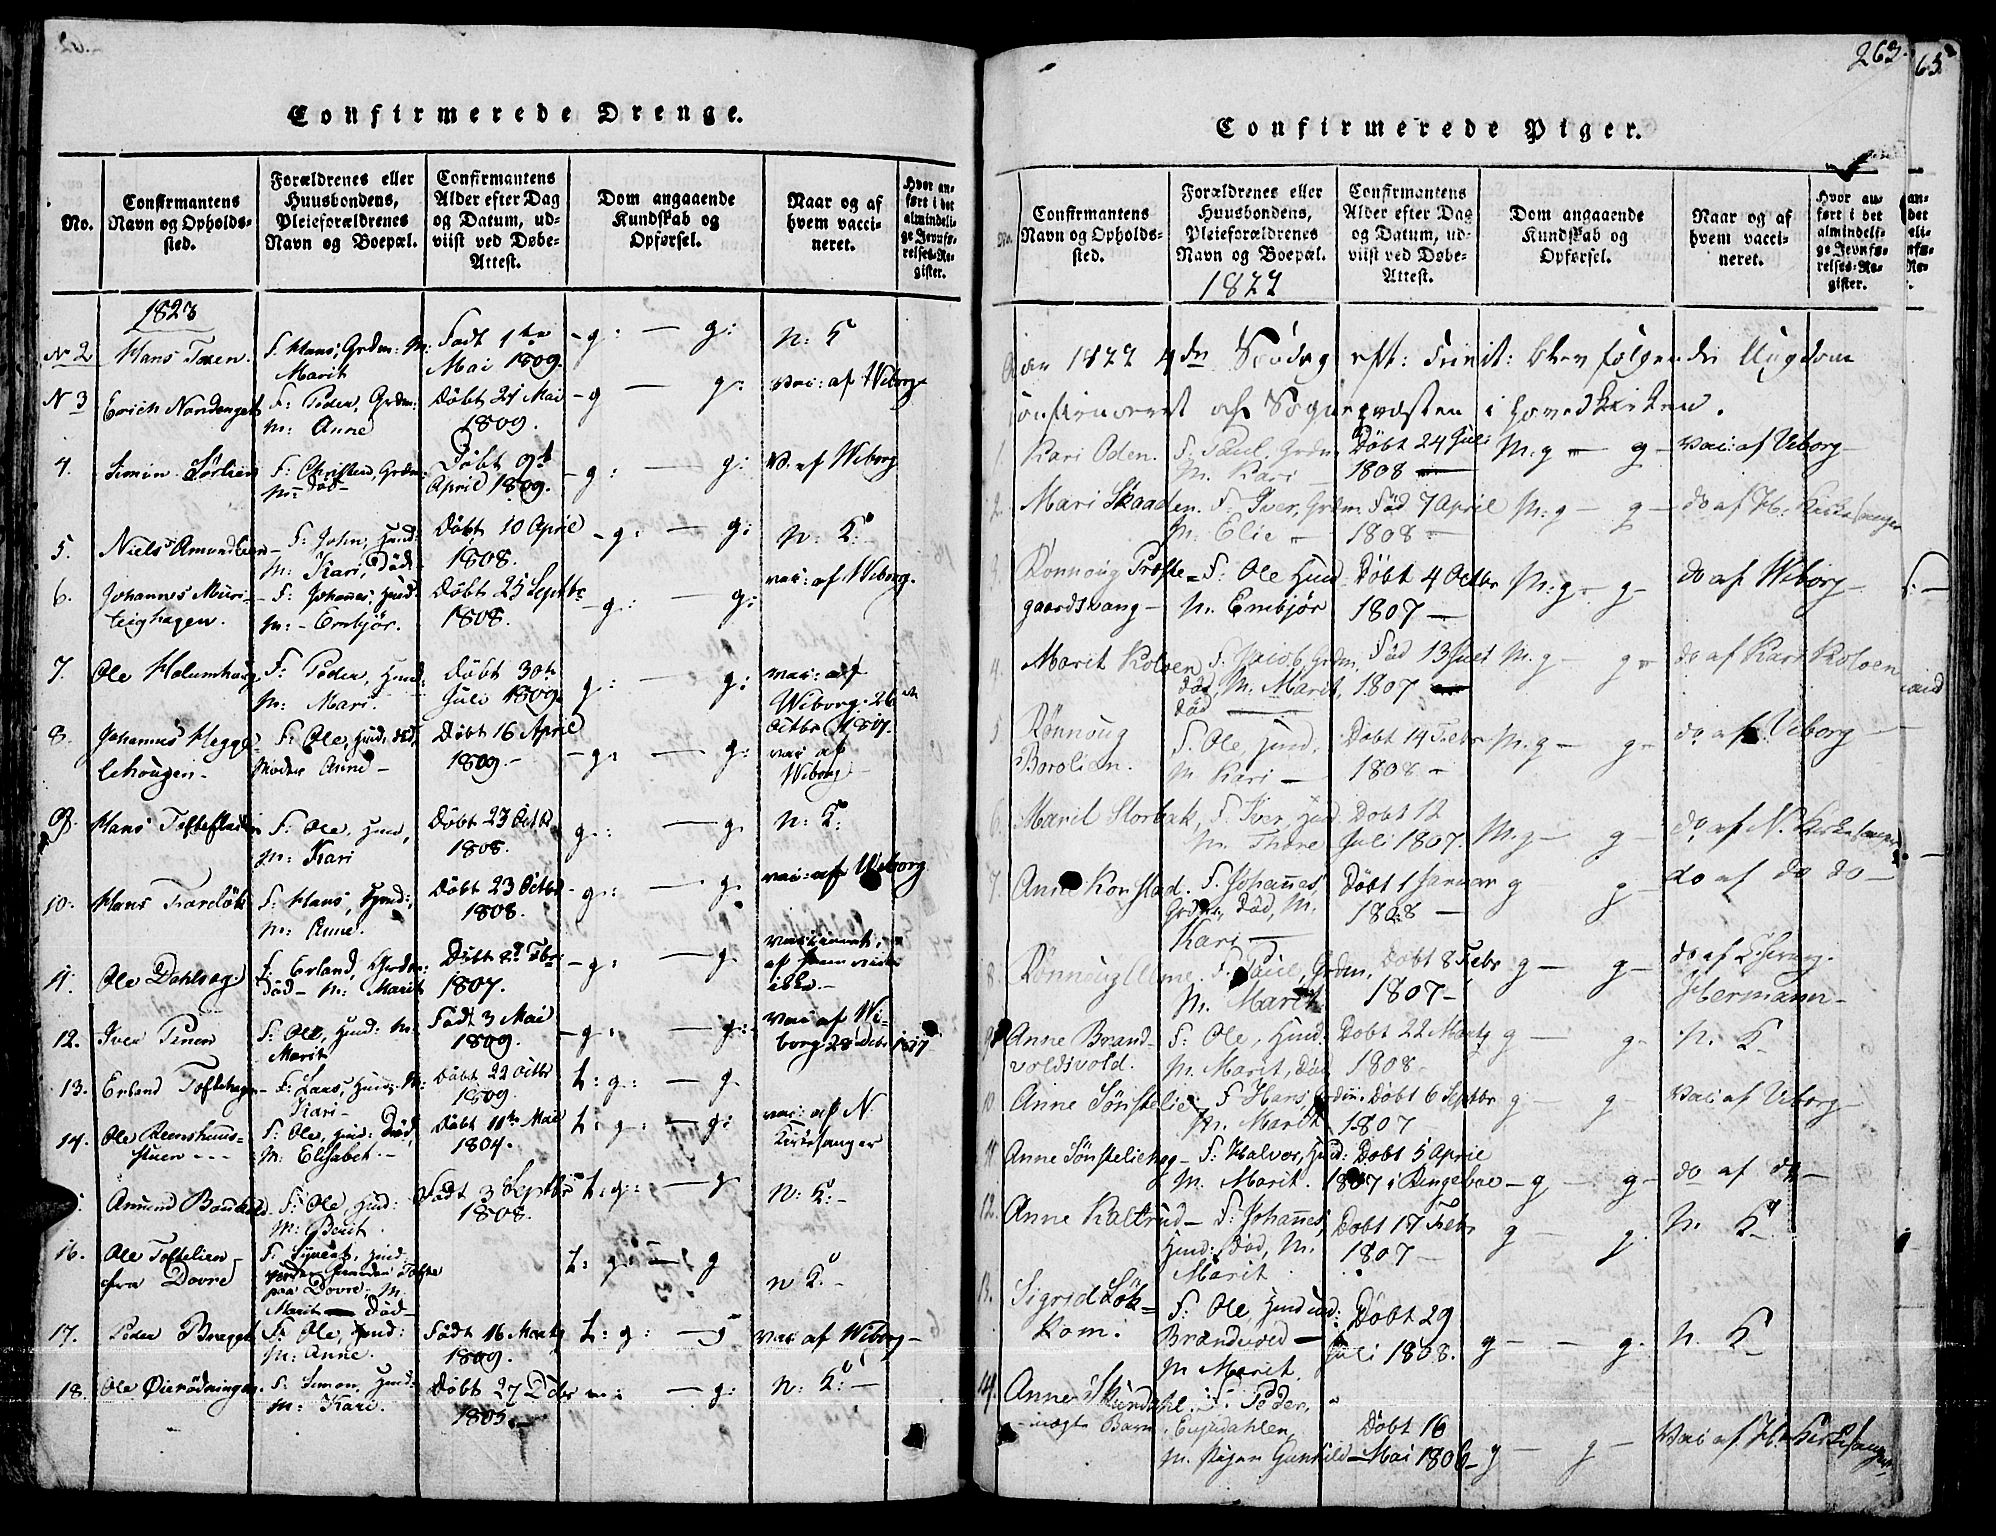 Confirmerede Drenge.
No.
Confirmantens Navn og Opholds-sted.
Forældrenes eller Huusbondens, Pleieforældrenes Navn og Boepæl.
Confirmantens Alder efter Dag og Datum, ud-viist ved Døbe-Attest.
Dom angaaende Kundskab og Opførsel.
Naar og af hvem vacci-neret.
Hvor an-ført i det almindeli-ge Jevnfø-relses-Re-gister.
1823
No 2 Hans Toxen. F. Hans, Grdm: M: Marit Født 1te Mai 1809. -g: — g: n: K
No 3 Erich Nordenget F: Peder, Grdm: M: Anne Døbt 21 Mai 1809. -g — g: vac: af Wiborg
4. Simen F: Christen, Grdm: M: død Døbt 9d April 1809. -g: — g: V. af Wiborg
5. Niels F: John, Huusd: M: Kari, Død Døbt 10 April 1808. -g: — g: n: K:
6. Johannes Muri-lieghagen. F: Johannes, Huusd M: Embjør. Døbt 25 Septbr 1808. -g: — g: vac: af Wiborg.
7. Ole Holumhaug F: Peder, Huusd: M: Mari. Døbt 30te Juli 1809. g: — g: vac: af Wiborg 26 Octbr 1817.
8. Johannes Hegge-lehougen. F: Ole, Huusd: død, Moder Anne Døbt 16 April 1809. -g: — g: vac af Wiborg
9. Hans F: Ole, Huusd, M: Kari Døbt 23 Octbr 1808. g: — g. n: K:
10. Hans F: Hans, Huusd:, M: Anne. Døbt 23 Octbr 1808. -g: — g. vac: af Wiborg
11. Ole Dahlseg. F: Erland, Grdm: Død - M: Marit Døbt Fbr: 1807. -g: — g.
12. Iver F: Ole, Huusd: M: Marit Født 3 Mai 1809. -g: — g: Vac af Wi-borg 28 Octbr 1817
13. Erland Toftehagen F: Huusd: M: Kari Døbt 22 Octbr 1809. t: g: — g
14. Ole -stuen F: Ole, Huusd: Død, M: Elisabet. Døbt 11te Mai 1804. t: g: — g: vac: af N. Kirkesanger
Amund F: Ole, Huusd: M: Berit Født 3 Septbr 1808. t: g: — g n: K:
16. Ole Toftelien fra Dovre F: Syvert, Huusd: paa Dovre, M: Marit Død t: g: — g n K:
17. Peder F: Ole, Huusd: M: Anne. Født 16 Marty 1809. t: g: — vac af Wiborg
18. Ole Øierødningen. F: Simon, Huusd: M: Kari. Døbt 27 Dcbr 1805. m: — g: n: K:
263.
65
Confirmerede Piger.
No.
Confirmantens Navn og Opholds-sted.
Forældrenes eller Huusbondens, Pleieforældrenes Navn og Boepæl.
Confirmantens Alder efter Dag og Datum, ud-viist ved Døbe-Attest.
Dom angaaende Kundskab og Opførsel.
Naar og af hvem vacci-neret.
Hvor an-ført i det almindeli-ge Jevnfø-relses-Re-gister.
1822
Aar 1822 4de Søndag eft: Trinit: blev følgende Ungdom
confirmeret af Sognepræsten i Hovedkirken.
1. Kari Oden. F. Paul, Grdm M. Kari Døbt 24 Juli 1808 M: g — g Vac: af Viborg
2. Mari Skaaden. F. Iver, Grdm. M. Elie Fød 7 April 1808 M: g — g do af H. Kirkesanger
3. Rønnoug Præste=gaardsvang F: Ole Huusd: M. Embjør Døbt 4 Octbr 1807 M: g — g do af Wiborg
4. Marit Koloen F. Jacob, Grdm, død, M. Marit, død Fød 13 Juli 1807 M. g — g do af Kari Koloen
5. Rønnoug Borolien. F. Ole, Huusd, M Kari Døbt 14 Febr 1808 M. g — g do af Viborg
6. Marit Storbak, F. Iver, Huusd: M. Thore Døbt 12 Juli 1807. M: g — g do af N. Kirkesanger
7. Anne Konstad. F. Johannes, Grdm, Død, M. Kari Døbt 1 Januar 1808 g g do af do do
8. Rønnoug F. Paul, Grdm, M. Marit Døbt 8 Febr 1807 g — g do af Hermann
9. Anne Brand-voldsvold. F: Ole, Huusd: M. Marit, Død Døbt 22 Marty 1808 g — g n. K
10. Anne Sønstelie F Hans, Grdm: M. Marit Døbt 6 Septbr 1807 g — g Vac: af Viborg
11. Anne Sønsteliehag F: Halvor, Huusd: M. Marit. Døbt 5 April 1807 i Ringeboe g — g do af do
12. Anne Kaltrud F: Johannes, Huusd: Død, M. Marit Døbt 17 Febr 1807 g — g n. K
13. Sigrid F: Ole Huusd Brandvold M Marit. Døbt 29 Juli 1808. g — g n. K
14. Anne uægte Barn F. Peder, M. Pigen Gunhild Døbt 16 Mai 1806 g — g Vac af H. Kirkesanger